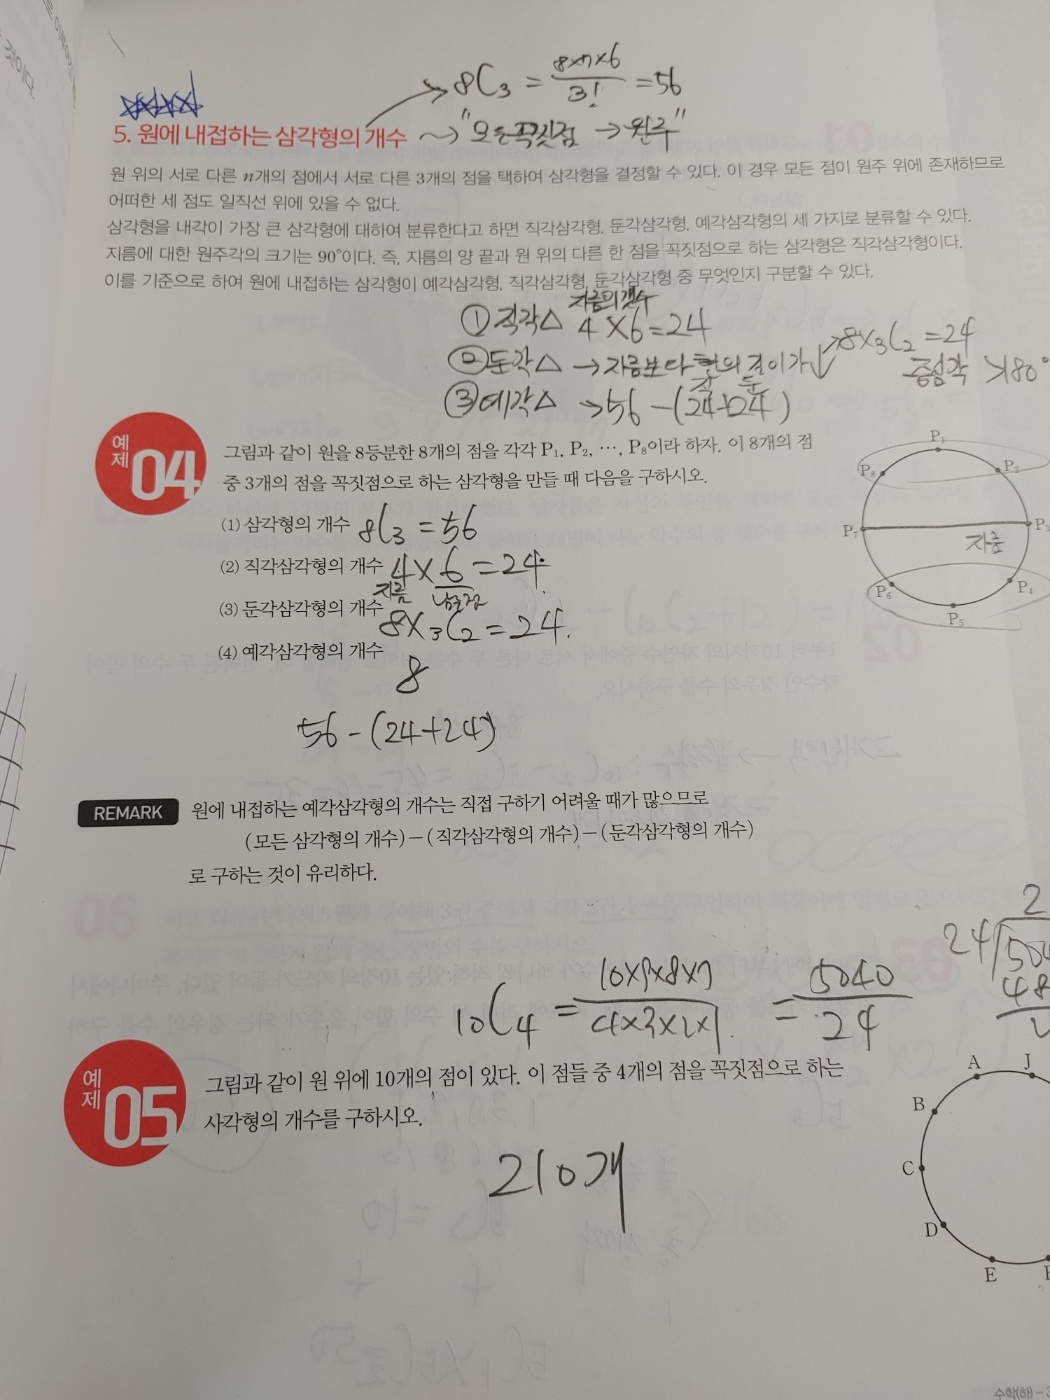 것이다.
8C3 = 8×7×6 / 3! = 56
5. 원에 내접하는 삼각형의 개수 ~> "모든 꼭짓점 → 원주"
원 위의 서로 다른 n개의 점에서 서로 다른 3개의 점을 택하여 삼각형을 결정할 수 있다. 이 경우 모든 점이 원주 위에 존재하므로
어떠한 세 점도 일직선 위에 있을 수 없다.
삼각형을 내각이 가장 큰 삼각형에 대하여 분류한다고 하면 직각삼각형, 둔각삼각형, 예각삼각형의 세 가지로 분류할 수 있다.
지름에 대한 원주각의 크기는 90°이다. 즉, 지름의 양 끝과 원 위의 다른 한 점을 꼭짓점으로 하는 삼각형은 직각삼각형이다.
이를 기준으로 하여 원에 내접하는 삼각형이 예각삼각형, 직각삼각형, 둔각삼각형 중 무엇인지 구분할 수 있다.
지름의 갯수
① 직각△ 4×6=24
② 둔각△ → 지름보다 현의 길이가↓ → 8×3C2=24
중심각 >180°
직 둔
③ 예각△ → 56-(24+24)
예제 04
그림과 같이 원을 8등분한 8개의 점을 각각 P1, P2, ⋯, P8이라 하자. 이 8개의 점
중 3개의 점을 꼭짓점으로 하는 삼각형을 만들 때 다음을 구하시오.
(1) 삼각형의 개수 8C3=56
(2) 직각삼각형의 개수 4×6=24.
지름
(3) 둔각삼각형의 개수 8×3C2=24.
(4) 예각삼각형의 개수 8
56-(24+24)
P1
P8 P2
P7 P3
지름
P6 P4
P5
REMARK 원에 내접하는 예각삼각형의 개수는 직접 구하기 어려울 때가 많으므로
(모든 삼각형의 개수)-(직각삼각형의 개수)-(둔각삼각형의 개수)
로 구하는 것이 유리하다.
10C4 = 10×9×8×7 / 4×3×2×1 = 5040 / 24
2
24 504
48
예제 05
그림과 같이 원 위에 10개의 점이 있다. 이 점들 중 4개의 점을 꼭짓점으로 하는
사각형의 개수를 구하시오.
210개
A J
B
C
D
E
수학(하)-